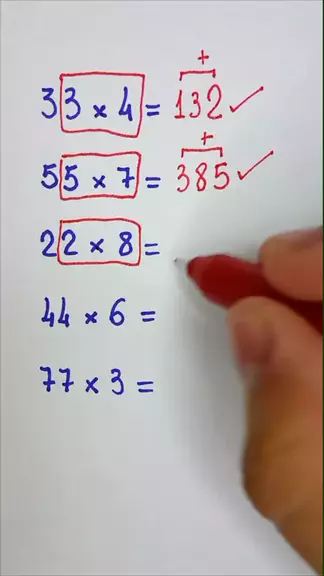 +
33 × 4 = 132 ✓
+
55 × 7 = 385 ✓
22 × 8 =
44 × 6 =
77 × 3 =